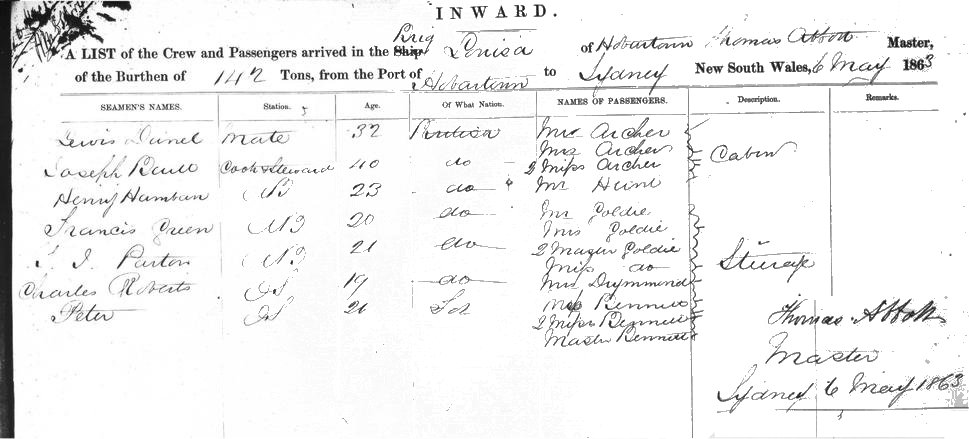 INWARD.
A LIST of the Crew and Passengers arrived in the Ship Brig Louisa of Hobartown Thomas Abbott Master,
of the Burthen of 142 Tons, from the Port of Hobartown to Sydney New South Wales, 6 May 1863
SEAMEN'S NAMES. Station. Age. Of What Nation. NAMES OF PASSENGERS. Description. Remarks.
Lewis Mate 32 Mr Archer
Mrs Archer Cabin
Joseph Cook & Steward 40 do 2 Miss Archer
Henry AB 23 do " Mr
Francis Green AB 20 do Mr Goldie
Mrs Goldie
J Parton AB 21 do 2 Master Goldie Steerage
Miss do
Charles Roberts OS 19 do Mrs Drymmond
Peter OS 21 Bennett
2 Miss Bennett
Master Bennett
Thomas Abbott
Master
Sydney 6 May 1863